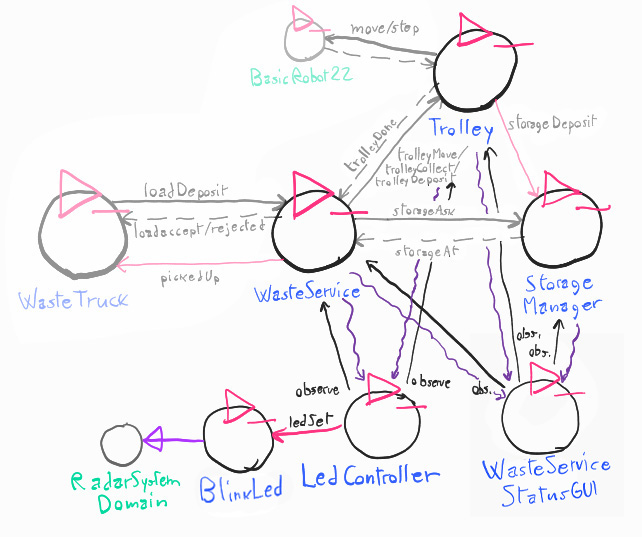 move/stop
BasicRobot22
Trolley
storageDeposit
trolleyDone
trolleyMove/
trolleyCollect/
trolleyDeposit
loadDeposit
storageAsk
loadaccept/rejected
storageAt
pickedUp
WasteTruck
WasteService
Storage
Manager
obs.
obs.
observe
observe
obs.
ledSet
RadarSystem
Domain
BlinkLed
LedController
WasteService
StatusGUI